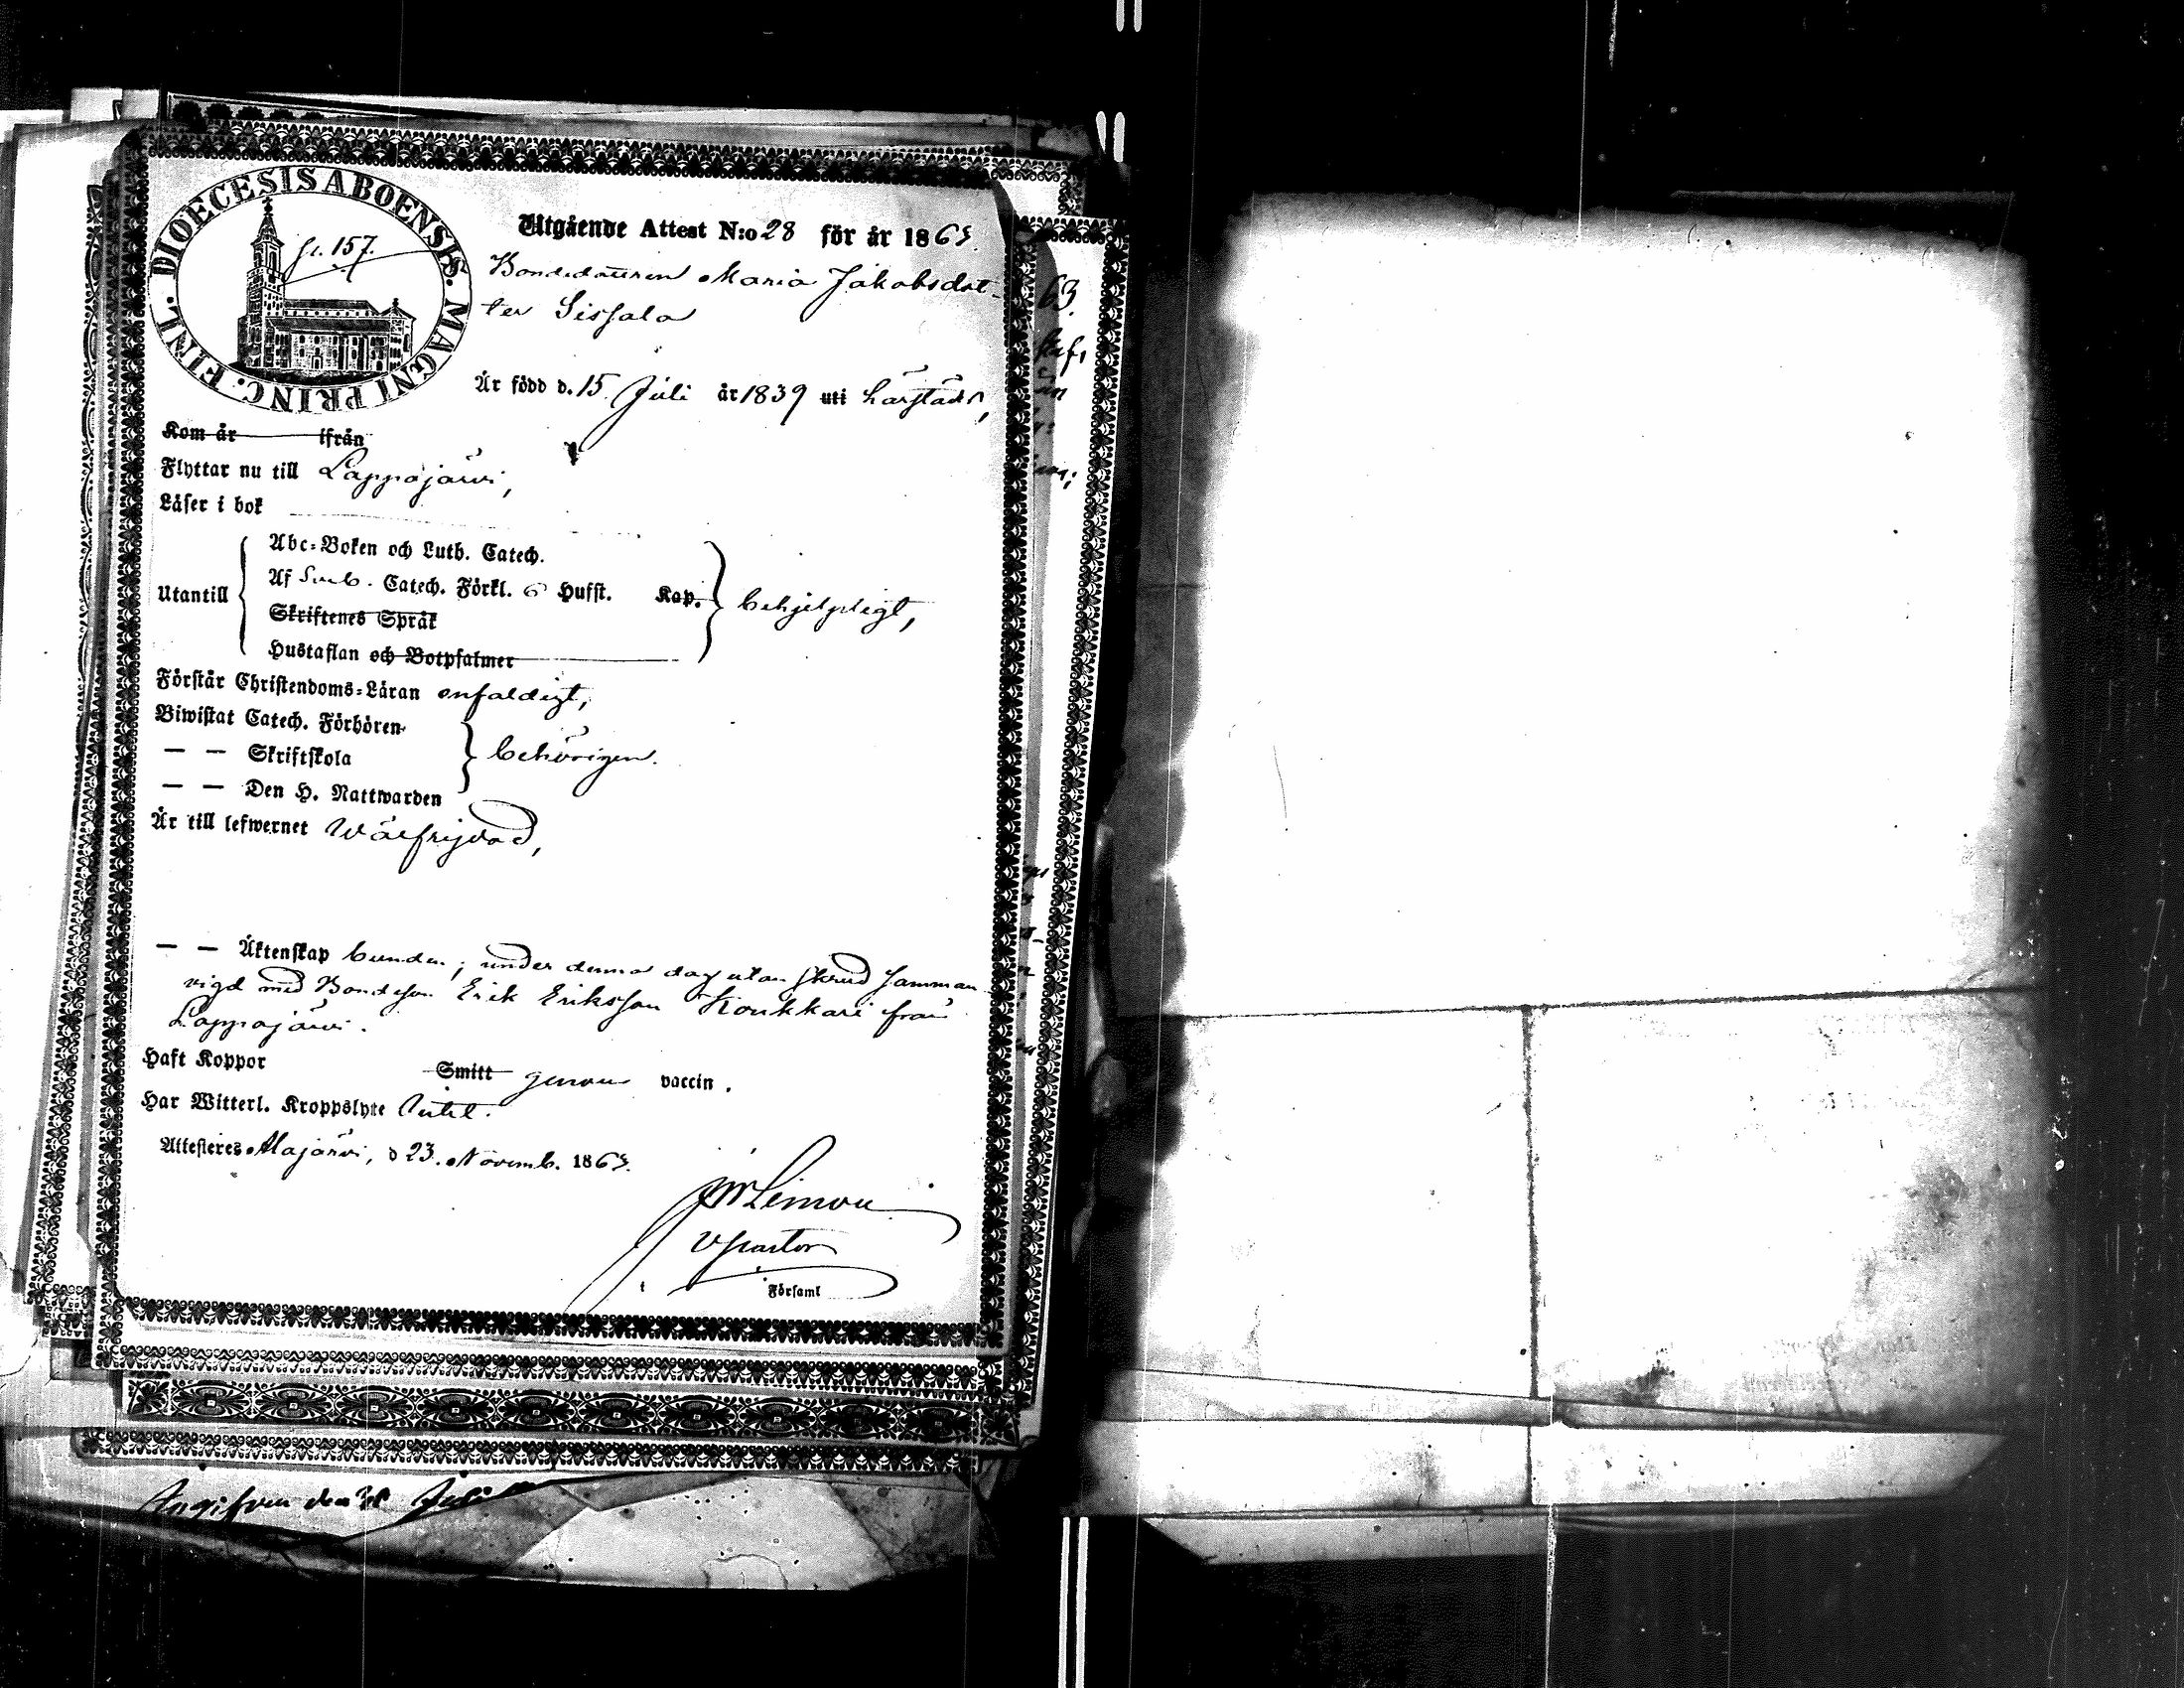 DIOECESIS ABOENSIS. MAGNI PRINC. FINL.
157.
Utgående Attest N:o 28 för år 1863.
Bondedottren Maria Jakobsdot-
ter Sissala
Är född d. 15 Juli år 1839 uti härstädes,
Kom år ifrån
Flyttar nu till Lappajärvi,
Läser i bok
Utantill
Abc-Boken och Luth. Catech.
Af Catech. Förkl. 6 Hufst. Kap.
Skriftenes Språk
Hustaflan och Botpsalmer
behjelpligt,
Förstår Christendoms-Läran enfaldigt,
Biwistat Catech. Förhören
— — Skriftskola
— — Den H. Nattwarden
behörigen.
Är till lefwernet Wälfrejdad,
— — Äktenskap bunden; under denna dag utan skrud samman-
vigd med Bondeson Erik Eriksson Koukkari från
Lappajärvi.
Haft Koppor Smitt genom vaccin.
Har Witterl. Kroppslyte intet.
Attesteras Alajärvi, d 23. Novemb. 1863.
V Pastor
Församl
63.
Angifven den Juli